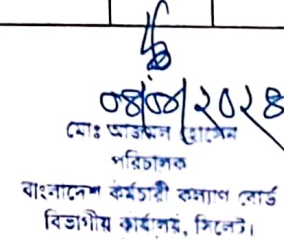 ০৪/০৮/২০২৪
মোঃ হোসেন
পরিচালক
বাংলাদেশ কর্মচারী কল্যাণ বোর্ড
বিভাগীয় কার্যালয়, সিলেট।